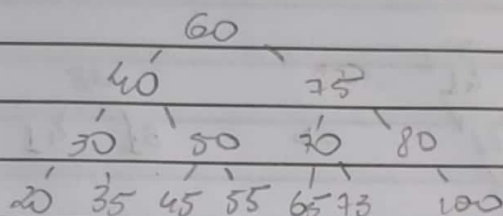 60
40 75
30 50 70 80
20 35 45 55 65 73 100